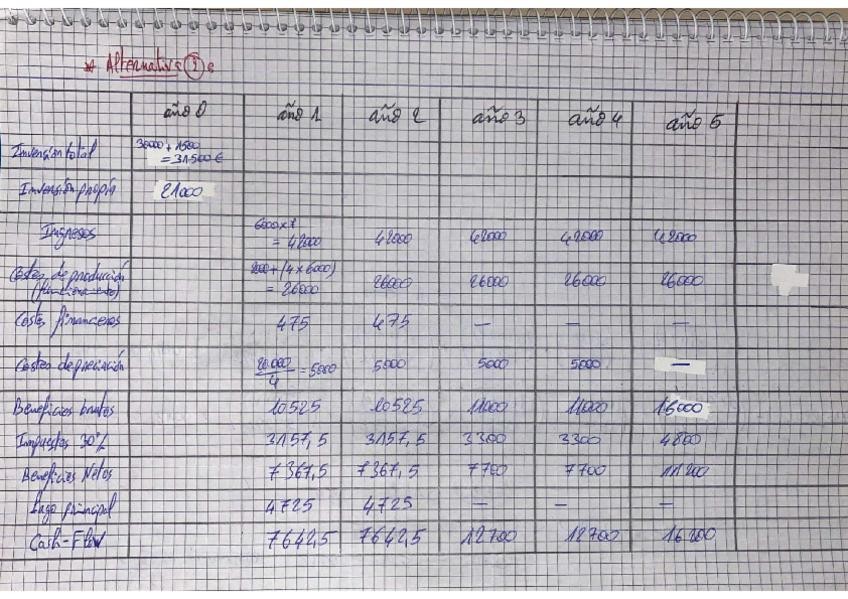 * Alternativa ① :
año 0 año 1 año 2 año 3 año 4 año 5
Inversión total 30000 + 1500
= 31500 €
Inversión propia 21000
Ingresos 6000 x 7
= 42000 42000 42000 42000 42000
Costes de producción 2000 + (4 x 6000)
(funcionamiento) = 26000 26000 26000 26000 26000
Costes financieros 475 475 — — —
Costes depreciación 20.000/4 = 5000 5000 5000 5000 —
Beneficios brutos 10525 10525 11000 11000 16000
Impuestos 30% 3157,5 3157,5 3300 3300 4800
Beneficios Netos 7367,5 7367,5 7700 7700 11200
Pago principal 4725 4725 — — —
Cash-Flow 7642,5 7642,5 12700 12700 16200